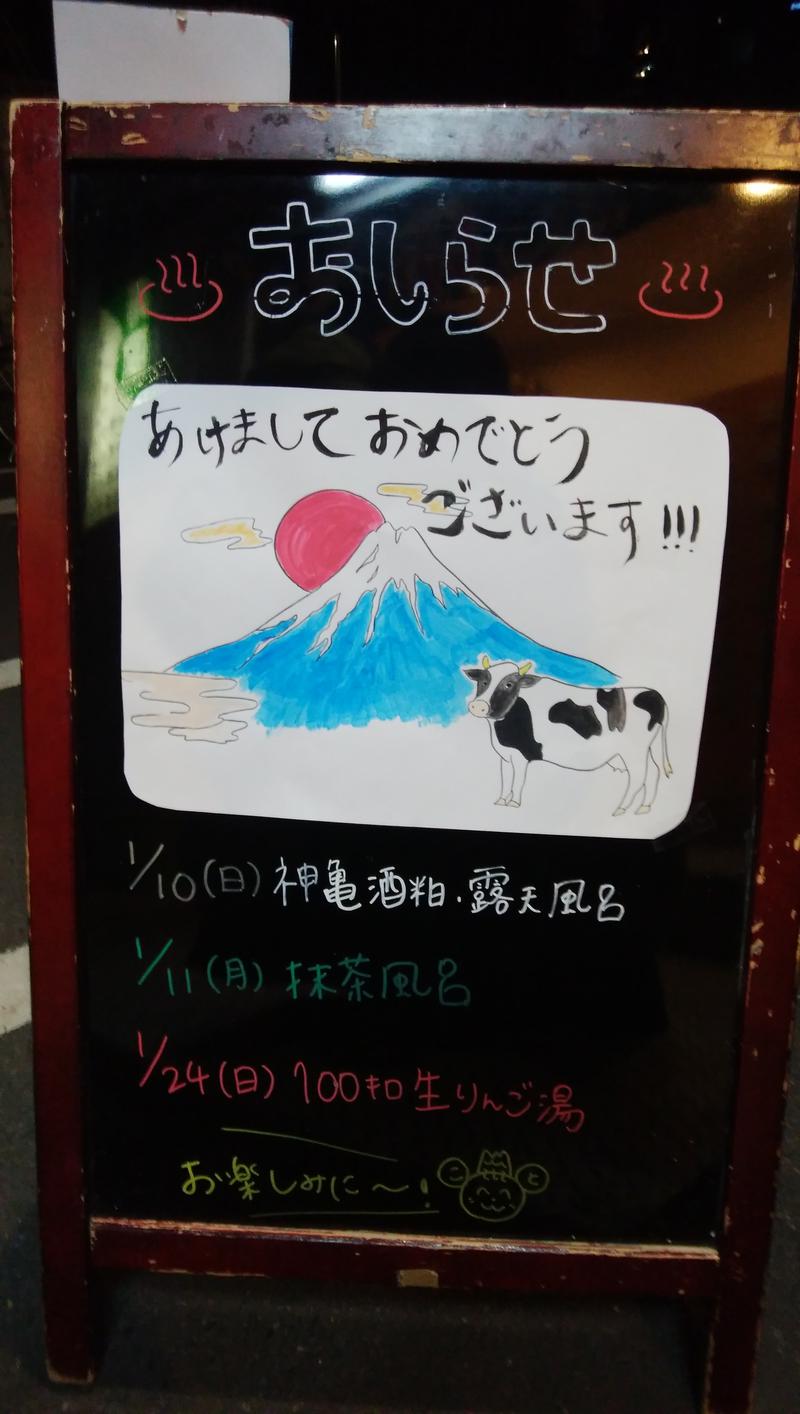 おしらせ
あけまして おめでとう
ございます!!!
1/10(日)神亀酒粕・露天風呂
1/11(月)抹茶風呂
1/24(日)100キロ生りんご湯
お楽しみに〜!
こ と